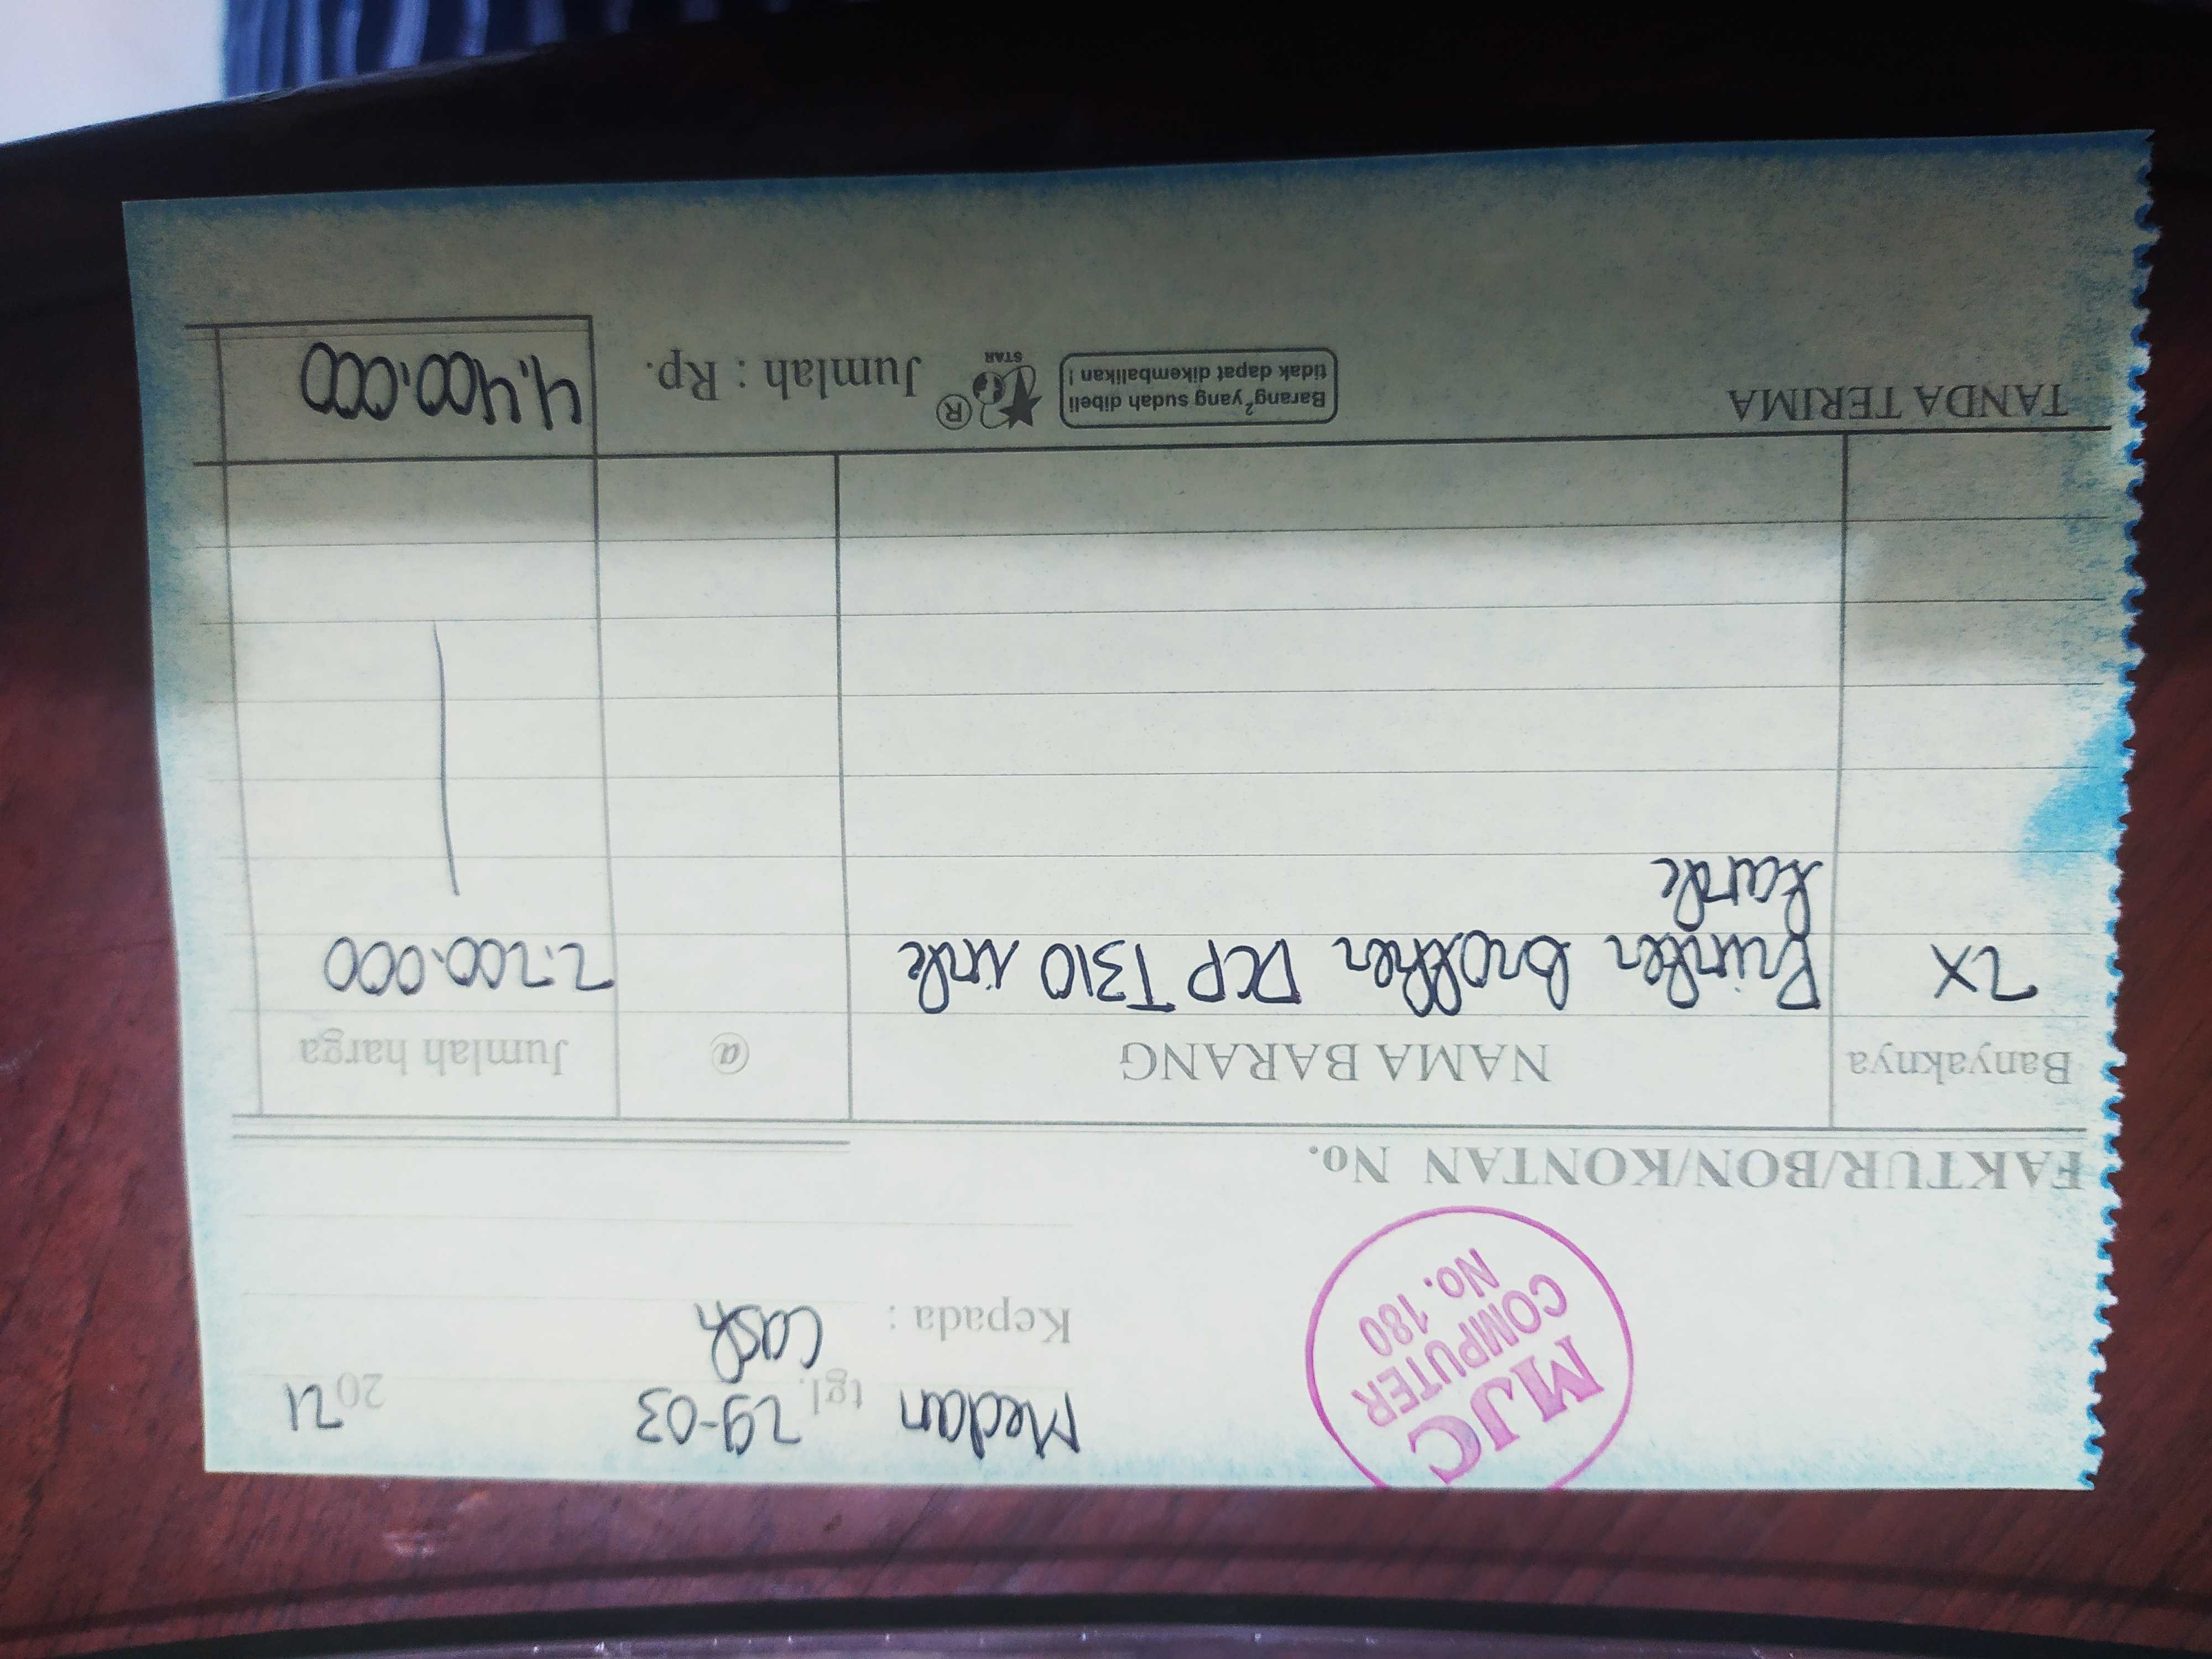 MJC
COMPUTER
No. 180
Medan tgl. 29-03 2021
Kepada : Cash
FAKTUR/BON/KONTAN No.
Banyaknya NAMA BARANG @ Jumlah harga
2X Printer Brother DCP T310 ink 2.200.000
tank
TANDA TERIMA
Barang² yang sudah dibeli
tidak dapat dikembalikan !
STAR ®
Jumlah : Rp. 4.400.000